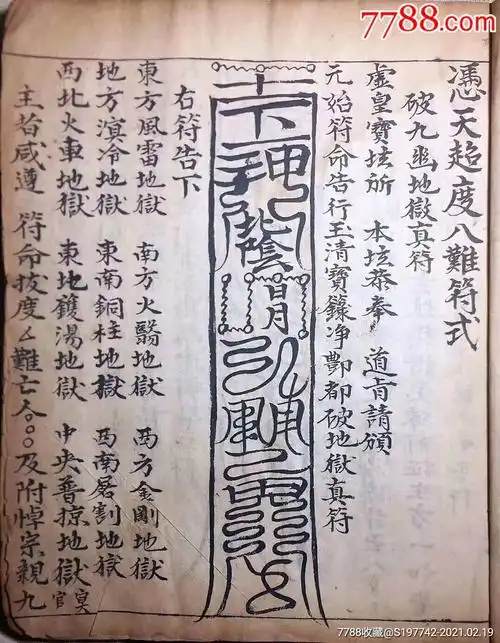 7788.com
憑天超度八難符式
破九幽地獄真符
虛皇寶坛所 本坛恭奉 道旨請頒
元始符命告行玉清寶籙净酆都破地獄真符
日月
右符告下
東方風雷地獄 南方火翳地獄 西方金剛地獄
地方溟冷地獄 東南銅柱地獄 西南屠割地獄
西北火車地獄 東地鑊湯地獄 中央普掠地獄冥官
主者咸遵 符命拔度厶難亡人○○及附悼宗親九
7788收藏@S197742-2021.02.19